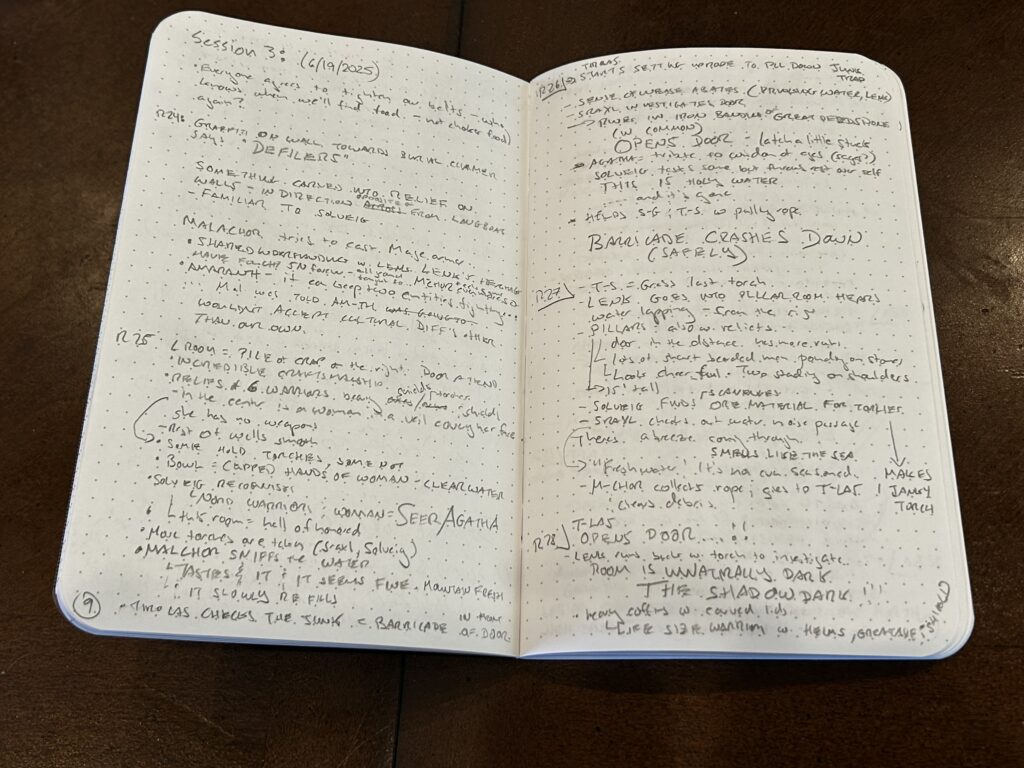 Session 3: (6/19/2025)
• Everyone agrees to tighten our belts - who
knows when we'll find food (not choker food)
again?
R24: GRAFFITI ON WALL TOWARDS BURIAL CHAMBER
SAYS "DEFILERS"
SOMETHING CARVED INTO RELIEF ON
WALLS - IN DIRECTION OPPOSITE FROM LONGBOAT
- FAMILIAR TO SOLVEIG
MALACHOR tries to cast Mage armor...
• SHARED WORD w. LENK. LENK'S HERITAGE
• AMARANTH - it can keep two entities fighting...
... Mal was TOLD
WOULDN'T ACCEPT CULTURAL DIFF'S other
THAN OUR OWN.
R25:
L ROOM = PILE of CRAP on the right. DOOR AT END.
• INCREDIBLE CRAFTSMANSHIP
• RELIEFS of 6 WARRIORS bearing shields
- in the center is a woman w a veil covering her face
she has no weapons
- Rest of walls smooth
• SOME HOLD TORCHES, SOME NOT
• BOWL = CUPPED HANDS OF WOMAN - CLEAR WATER
• SOLVEIG RECOGNISES
NORD WARRIORS; WOMAN = SEER AGATHA
this room = hall of honored
• More torches are taken (Sraxl, Solveig)
• MALCHOR SNIFFS the WATER
TASTES IT & IT SEEMS FINE. MOUNTAIN FRESH
IT SLOWLY REFILLS
• TIMO LAS CHECKS THE JUNK = BARRICADE IN FRONT OF DOOR.
9
R26 STARTS SETTING UP ROPE TO PULL DOWN JUNK
- SENSE OF UNEASE ABATES (DRINKING WATER, LENK)
- SRAXL INVESTIGATES DOOR
→ RUNES IN IRON BANDING "GREAT DEEDS DONE"
(IN COMMON)
OPENS DOOR - latch a little stuck
AGATHA = tribute to wisdom of
SOLVEIG tastes some but
THIS IS HOLY WATER
... and it's gone
• HELPS S-G; T-S w pully rope
BARRICADE CRASHES DOWN
(SAFELY)
R27
- T-S = Grabs last torch
- LENK GOES INTO PILLAR ROOM. HEARS
water lapping - from the right
- PILLARS also w. reliefs.
door in the distance has more runes
lots of short bearded men pounding on stones
Looks cheerful. Two standing on shoulders
15' tall
- SOLVEIG SCAVENGES FINDS MORE MATERIAL FOR TORCHES.
- SRAXL checks out water noise passage
There's a breeze coming through.
SMELLS LIKE THE SEA
Freshwater! It's not even seasoned.
- M-CHOR collects rope; gives to T-LAS
clears debris
MAKES
JANKY
TORCH
R28 T-LAS
OPENS DOOR...!!
- LENK runs back w. torch to investigate
ROOM IS UNNATURALLY DARK
THE SHADOWDARK!!!
heavy coffers w. carved lids
LIFE SIZE WARRIORS w. HELMS, GREATAXE & SHIELD